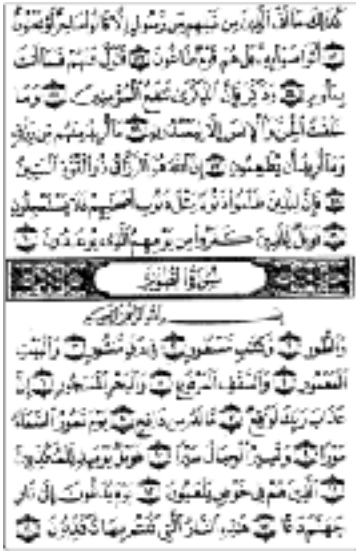 كَذَٰلِكَ مَا أَتَى الَّذِينَ مِن قَبْلِهِم مِّن رَّسُولٍ إِلَّا قَالُوا سَاحِرٌ أَوْ مَجْنُونٌ
۝ أَتَوَاصَوْا بِهِ بَلْ هُمْ قَوْمٌ طَاغُونَ ۝ فَتَوَلَّ عَنْهُمْ فَمَا أَنتَ
بِمَلُومٍ ۝ وَذَكِّرْ فَإِنَّ الذِّكْرَىٰ تَنفَعُ الْمُؤْمِنِينَ ۝ وَمَا
خَلَقْتُ الْجِنَّ وَالْإِنسَ إِلَّا لِيَعْبُدُونِ ۝ مَا أُرِيدُ مِنْهُم مِّن رِّزْقٍ
وَمَا أُرِيدُ أَن يُطْعِمُونِ ۝ إِنَّ اللَّهَ هُوَ الرَّزَّاقُ ذُو الْقُوَّةِ الْمَتِينُ
۝ فَإِنَّ لِلَّذِينَ ظَلَمُوا ذَنُوبًا مِّثْلَ ذَنُوبِ أَصْحَابِهِمْ فَلَا يَسْتَعْجِلُونِ
۝ فَوَيْلٌ لِّلَّذِينَ كَفَرُوا مِن يَوْمِهِمُ الَّذِي يُوعَدُونَ ۝
سُورَةُ الطُّورِ
بِسْمِ اللَّهِ الرَّحْمَٰنِ الرَّحِيمِ
وَالطُّورِ ۝ وَكِتَابٍ مَّسْطُورٍ ۝ فِي رَقٍّ مَّنشُورٍ ۝ وَالْبَيْتِ
الْمَعْمُورِ ۝ وَالسَّقْفِ الْمَرْفُوعِ ۝ وَالْبَحْرِ الْمَسْجُورِ ۝ إِنَّ
عَذَابَ رَبِّكَ لَوَاقِعٌ ۝ مَّا لَهُ مِن دَافِعٍ ۝ يَوْمَ تَمُورُ السَّمَاءُ
مَوْرًا ۝ وَتَسِيرُ الْجِبَالُ سَيْرًا ۝ فَوَيْلٌ يَوْمَئِذٍ لِّلْمُكَذِّبِينَ
۝ الَّذِينَ هُمْ فِي خَوْضٍ يَلْعَبُونَ ۝ يَوْمَ يُدَعُّونَ إِلَىٰ نَارِ
جَهَنَّمَ دَعًّا ۝ هَٰذِهِ النَّارُ الَّتِي كُنتُم بِهَا تُكَذِّبُونَ ۝